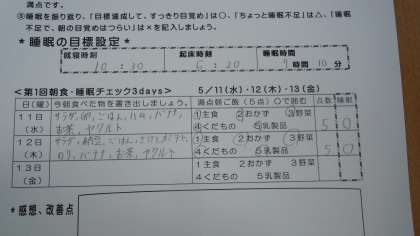 満点です。
③睡眠を振り返り、「目標達成して、すっきり目覚め」は○、「ちょっと睡眠不足」は△、「睡眠
不足で、朝の目覚めはつらい」は×を記入しましょう。
*睡眠の目標設定*
就寝時刻 起床時刻 睡眠時間
10:30 6:20 時間10分
<第1回朝食・睡眠チェック3days> 5/11(水)・12(木)・13(金)
日(曜) 今朝食べた物を書き出しましょう。 満点朝ご飯(5点)○で囲む 点数 睡眠
11日 サラダ、卵、ごはん、ハム、バナナ、 ①主食 ②おかず ③野菜
(水) お茶、ヤクルト ④くだもの ⑤乳製品 5 ○
12日 サラダ、納豆、ごはん、 ①主食 ②おかず ③野菜
(木) のり、バナナ、お茶、ヤクルト ④くだもの ⑤乳製品 5 ○
13日 1主食 2おかず 3野菜
(金) 4くだもの 5乳製品
*感想、改善点